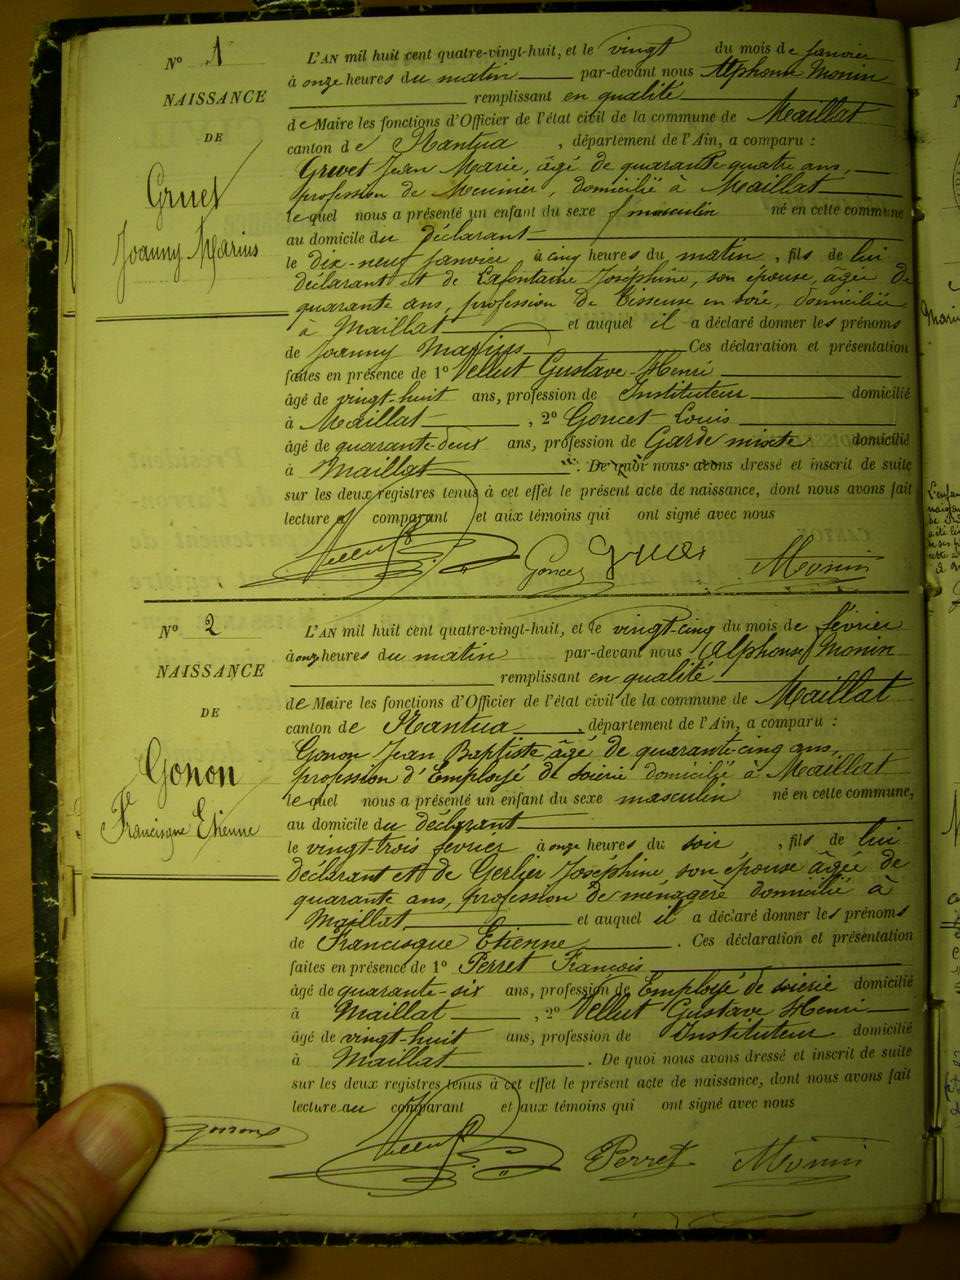 Nº 1
NAISSANCE
DE
Gruet
Joanny Marius
L'AN mil huit cent quatre-vingt-huit, et le vingt du mois de janvier
à onze heures du matin par-devant nous Alphonse Monin
remplissant en qualité
de Maire les fonctions d'Officier de l'état civil de la commune de Maillat
canton de Nantua, département de l'Ain, a comparu :
Gruet Jean Marie, âgé de quarante quatre ans,
profession de Meunier, domicilié à Maillat
lequel nous a présenté un enfant du sexe masculin né en cette commune
au domicile du déclarant
le dix-neuf janvier à cinq heures du matin, fils de lui
déclarant et de Lafontaine Joséphine, son épouse, âgée de
quarante ans, profession de Tisseuse en soie, domiciliée
à Maillat et auquel il a déclaré donner les prénoms
de Joanny Marius Ces déclaration et présentation
faites en présence de 1º Vellut Gustave-Henri
âgé de vingt-huit ans, profession de Instituteur domicilié
à Maillat, 2º Goncet Louis
âgé de quarante-deux ans, profession de Garde mixte domicilié
à Maillat. De quoi nous avons dressé et inscrit de suite
sur les deux registres tenus à cet effet le présent acte de naissance, dont nous avons fait
lecture au comparant et aux témoins qui ont signé avec nous
Vellut Goncet Gruet Monin
Nº 2
NAISSANCE
DE
Gonon
Francisque Etienne
L'AN mil huit cent quatre-vingt-huit, et le vingt-cinq du mois de février
à onze heures du matin par-devant nous Alphonse Monin
remplissant en qualité
de Maire les fonctions d'Officier de l'état civil de la commune de Maillat
canton de Nantua, département de l'Ain, a comparu :
Gonon Jean Baptiste âgé de quarante-cinq ans,
profession d'Employé de soierie domicilié à Maillat
lequel nous a présenté un enfant du sexe masculin né en cette commune,
au domicile du déclarant
le vingt-trois février à onze heures du soir, fils de lui
déclarant et de Gerlier Joséphine, son épouse âgée de
quarante ans, profession de ménagère domicilié à
Maillat et auquel il a déclaré donner les prénoms
de Francisque Etienne. Ces déclaration et présentation
faites en présence de 1º Perret François
âgé de quarante-six ans, profession de Employé de soierie domicilié
à Maillat, 2º Vellut Gustave Henri
âgé de vingt-huit ans, profession de Instituteur domicilié
à Maillat. De quoi nous avons dressé et inscrit de suite
sur les deux registres tenus à cet effet le présent acte de naissance, dont nous avons fait
lecture au comparant et aux témoins qui ont signé avec nous
Gonon Vellut Perret Monin